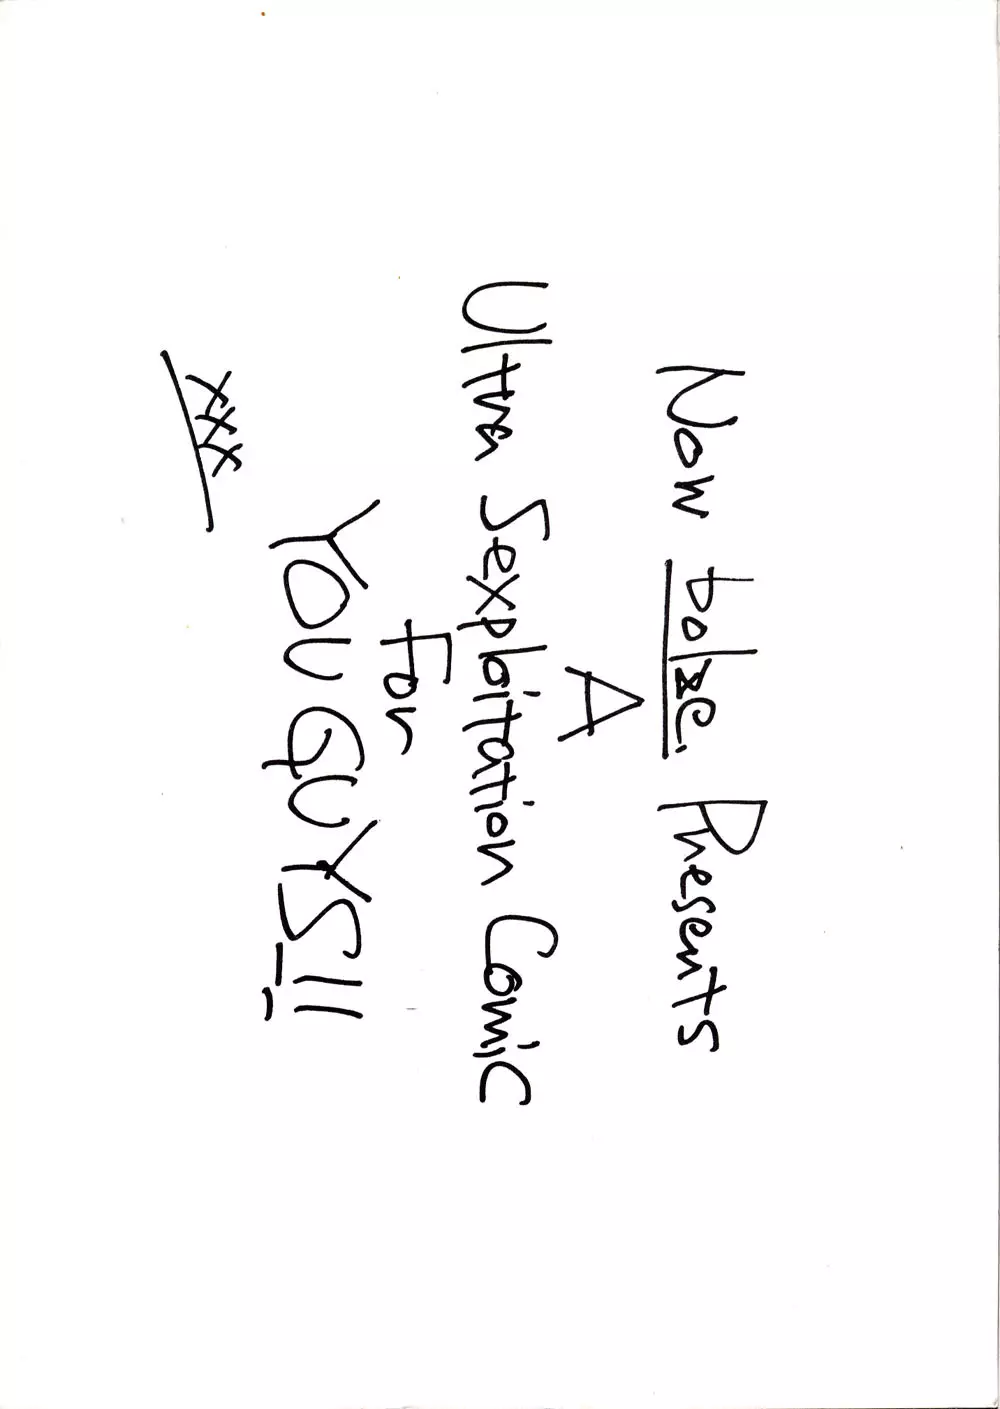 Now tolze. Presents
A
Ultra Sexploitation Comic
For
YOU GUYS!!
xxx